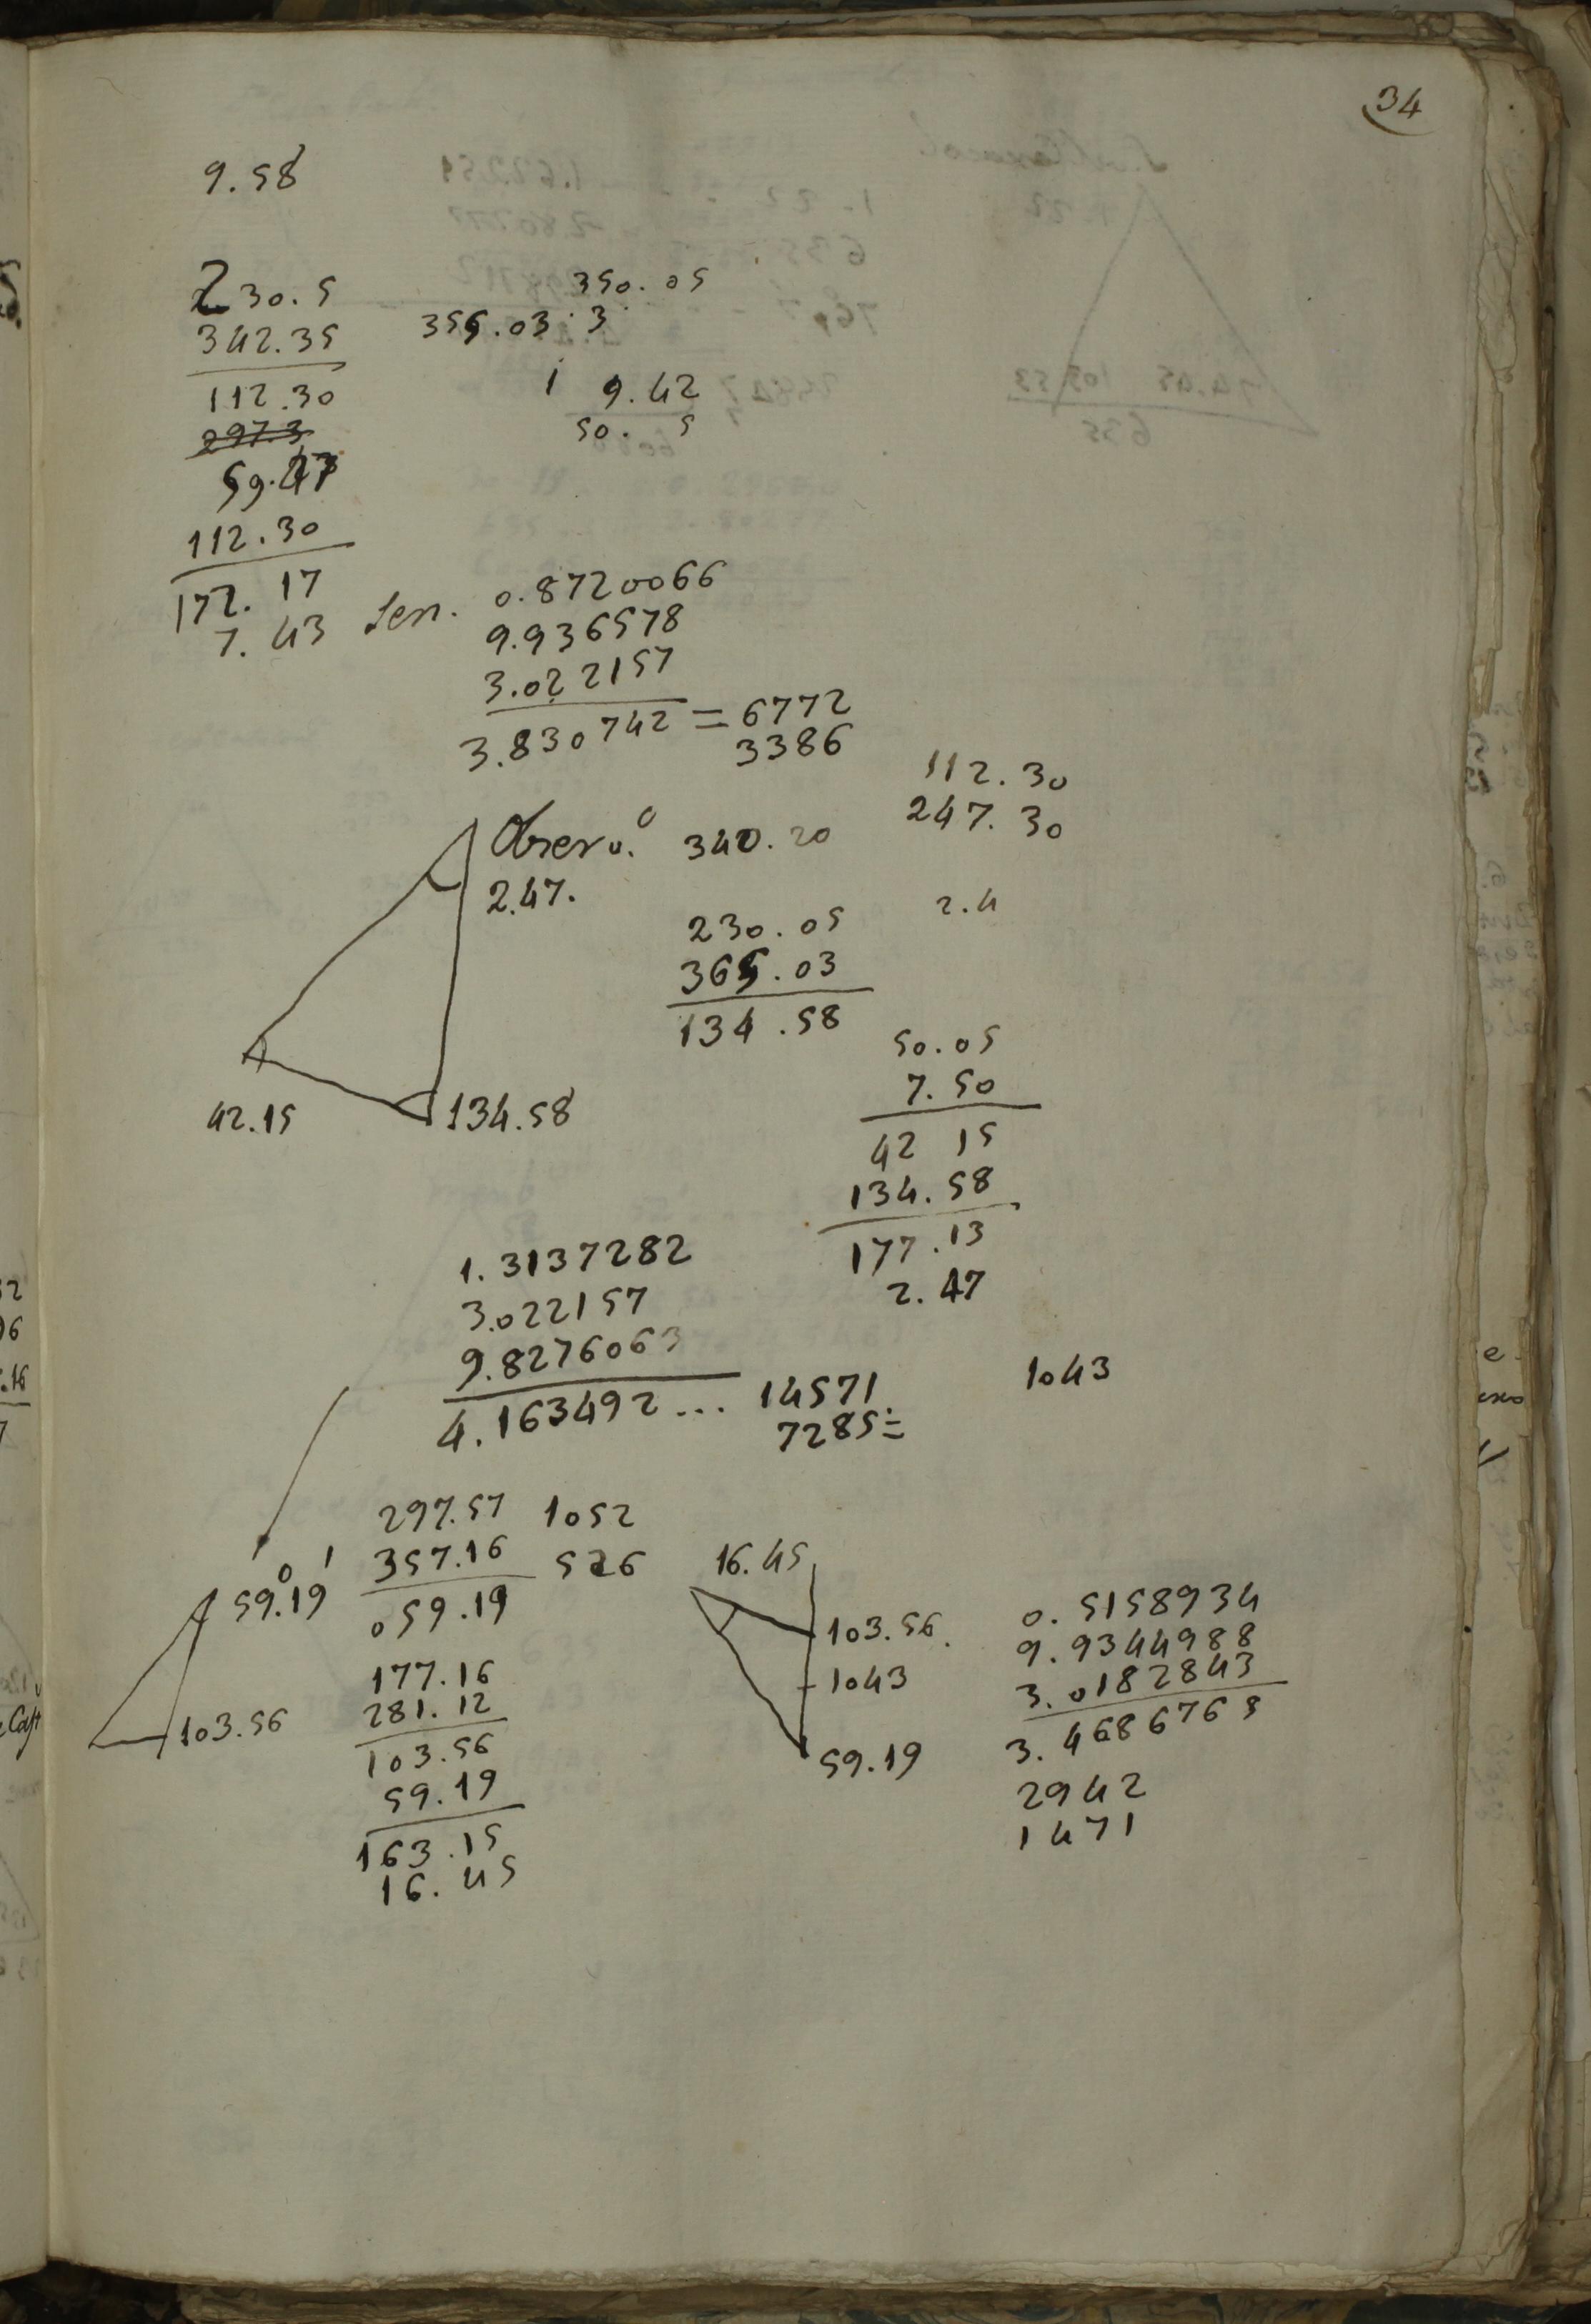 34
9.58
230.5
342.35
112.30
297.3
59.47
112.30
172.17
7.43
350.05
355.03.3
1 9.42
50. 5
Sen. 0.8720066
9.936578
3.022157
3.830742 = 6772
3386
112.30
247.30
2.4
Oberv.o 340.20
2.47.
230.05
365.03
134.58
42.15
134.58
50.05
7.50
42 15
134.58
177.13
2.47
1.3137282
3.022157
9.8276063
4.163492... 14571
7285
1043
297.57 1052
357.16 526
059.19
177.16
281.12
103.56
59.19
163.15
16.45
59.19
103.56
16.45
103.56.
1043
59.19
0.5158934
9.9344988
3.0182843
3.4686765
2942
1471